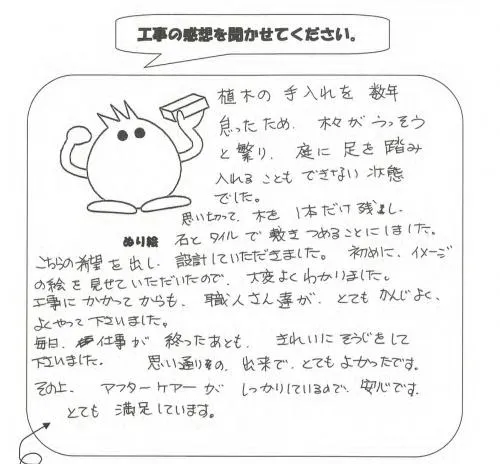 工事の感想を聞かせてください。
植木の 手入れを 数年
怠ったため、 木々が うっそう
と繁り、 庭に 足を 踏み
入れる ことも できない 状態
でした。
思い切って、 木を 1本だけ 残し、
ぬり絵
石と タイルで 敷きつめることにしました。
こちらの希望を出し、設計していただきました。 初めに、イメージ
の絵を見せていただいたので、大変よくわかりました。
工事に かかってからも、 職人さん達が、とても かんじよく、
よくやって下さいました。
毎日、 仕事が 終ったあとも、 きれいに そうじをして
下さいました。 思い通りの、出来で、とてもよかったです。
その上、 アフターケアーが しっかりしているので、安心です。
とても 満足しています。